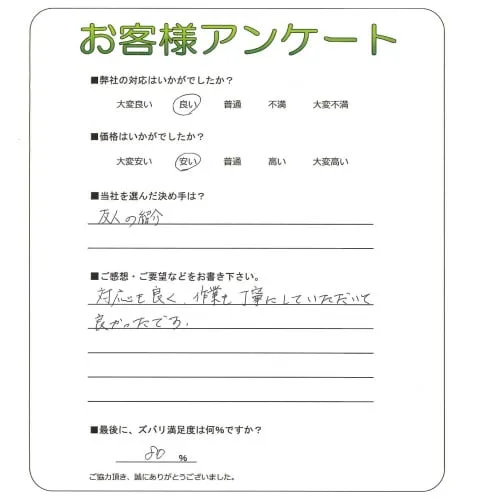 お客様アンケート
■弊社の対応はいかがでしたか？
大変良い 良い 普通 不満 大変不満
■価格はいかがでしたか？
大変安い 安い 普通 高い 大変高い
■当社を選んだ決め手は？
友人の紹介
■ご感想・ご要望などをお書き下さい。
対応も良く、作業も丁寧にしていただいて
良かったです.
■最後に、ズバリ満足度は何％ですか？
80 ％
ご協力頂き、誠にありがとうございました。